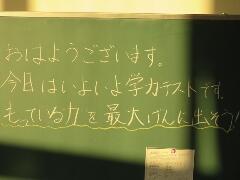 おはようございます。
今日はいよいよ学力テストです。
もっている力を最大げんに出そう!